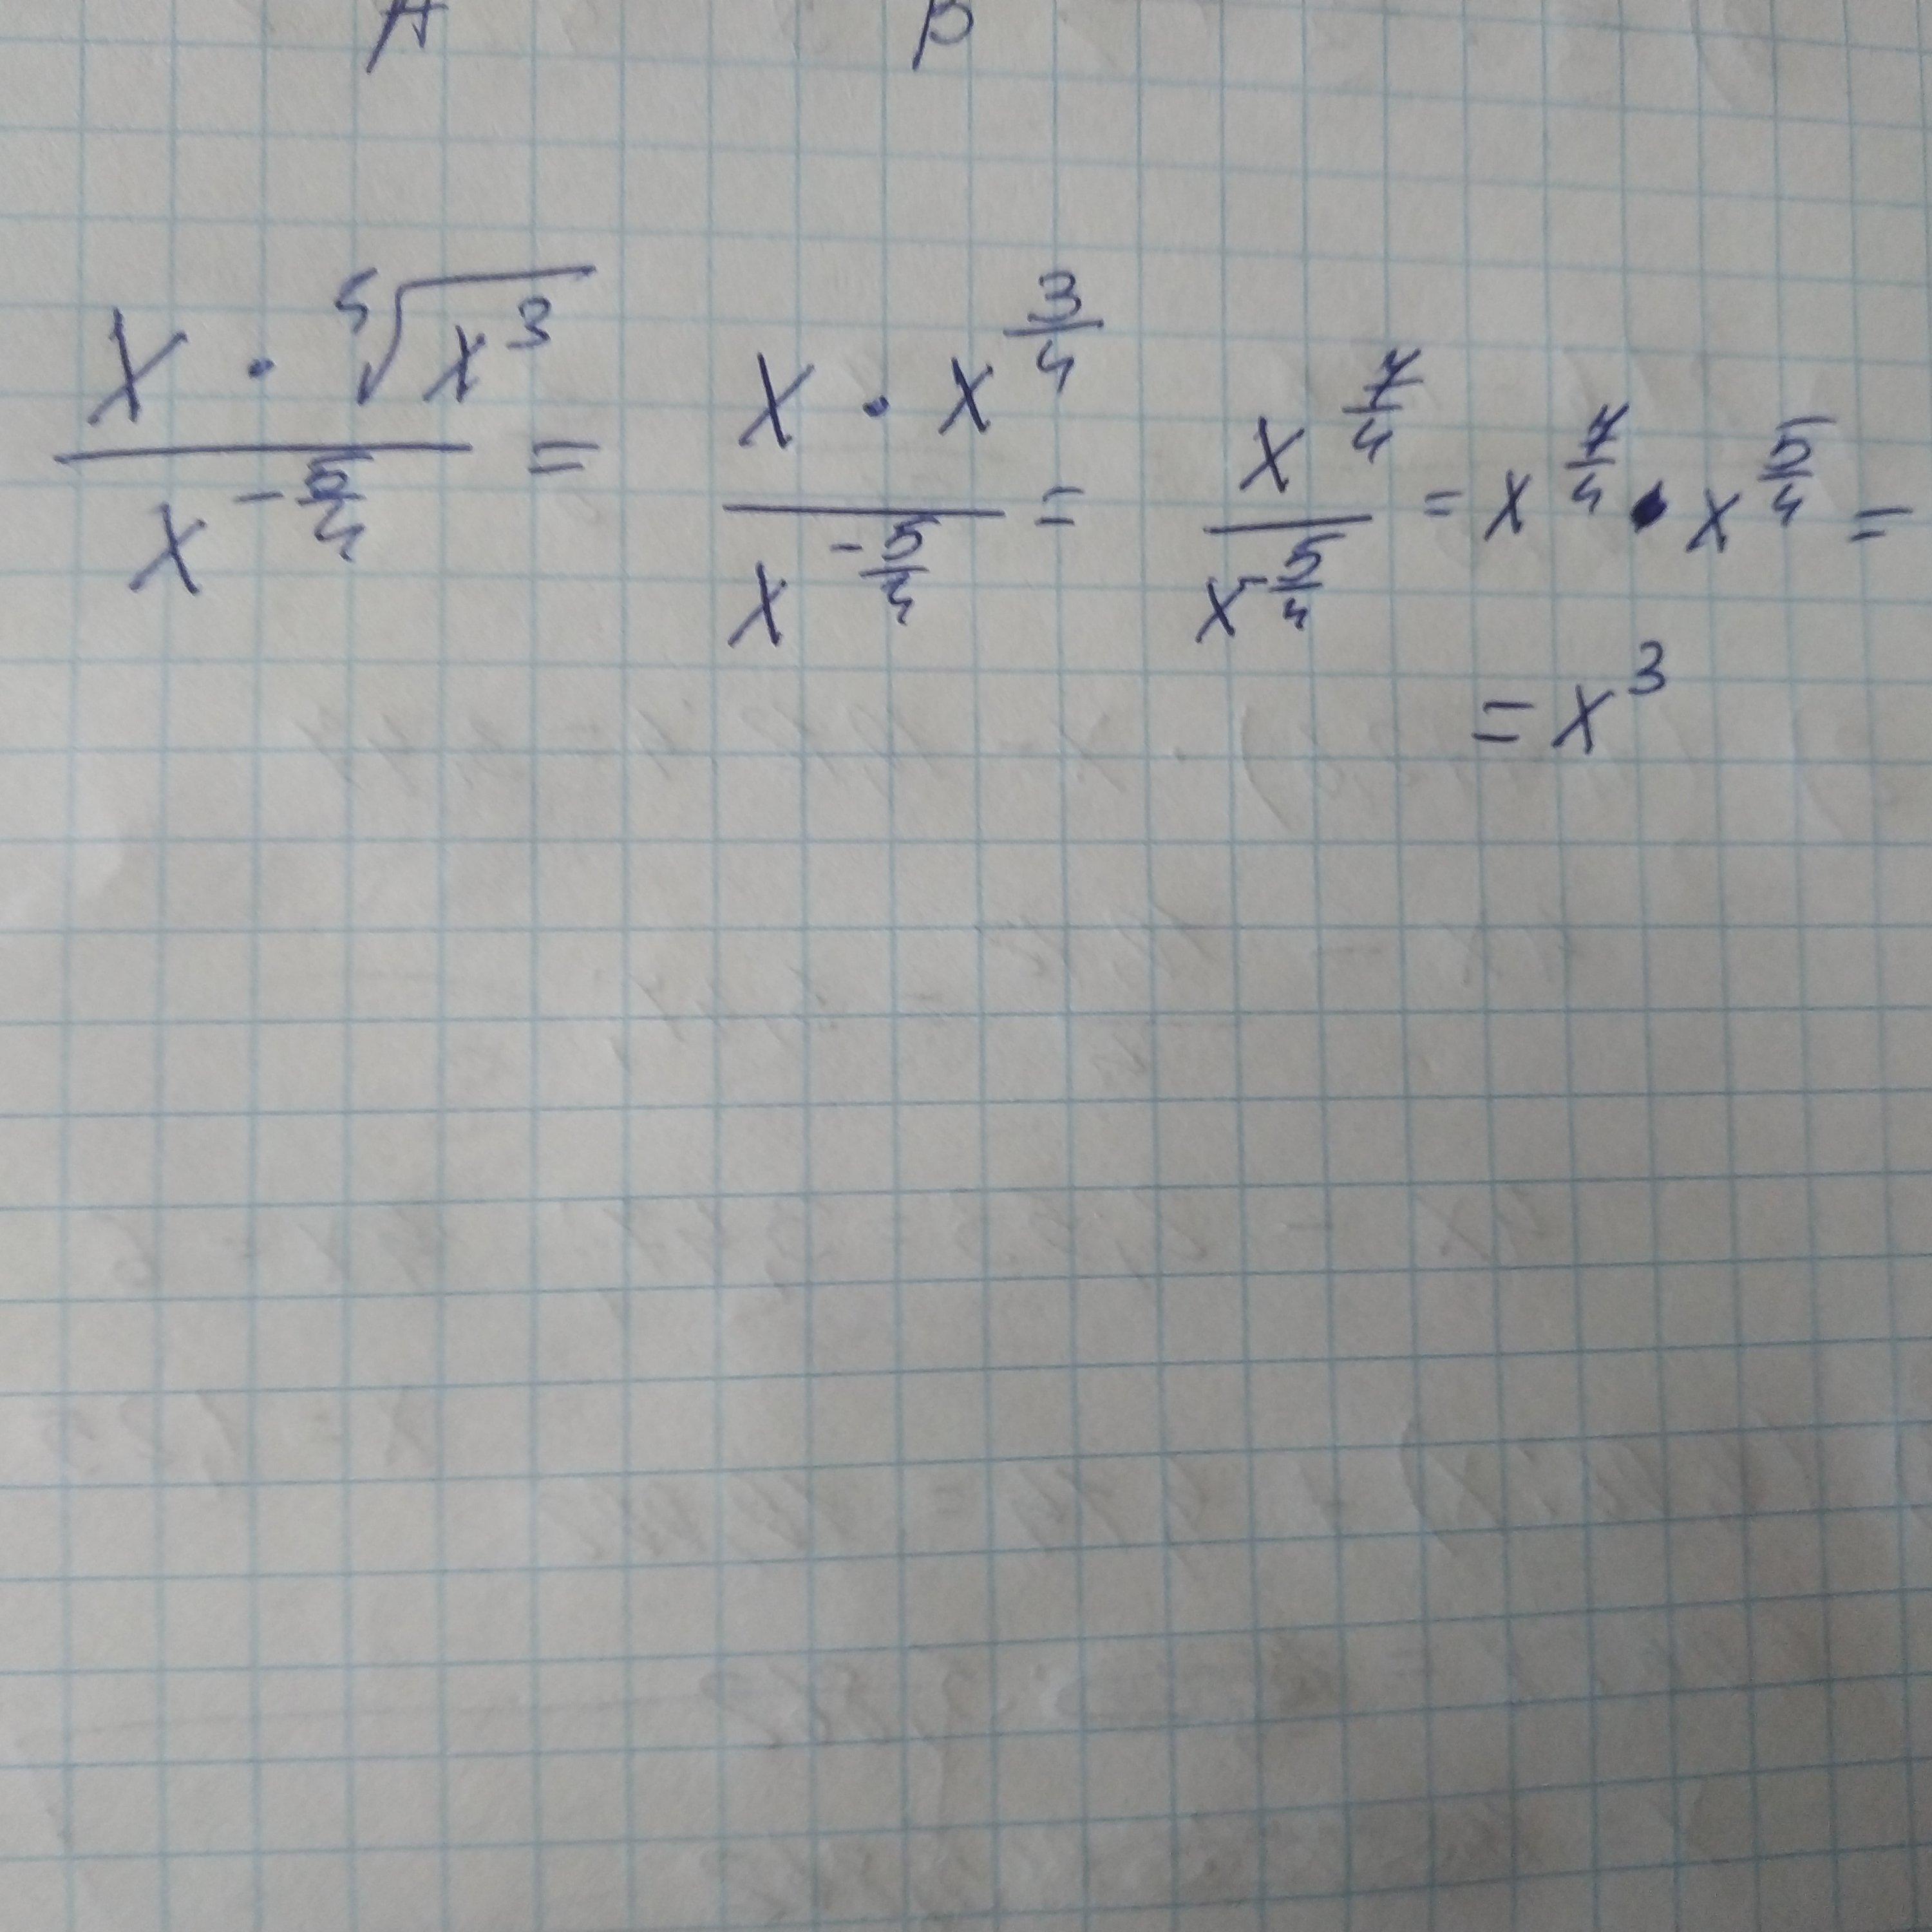 A B
x · ⁴√x³ / x^(-5/4) = x · x^(3/4) / x^(-5/4) = x^(7/4) / x^(-5/4) = x^(7/4) · x^(5/4) =
= x³